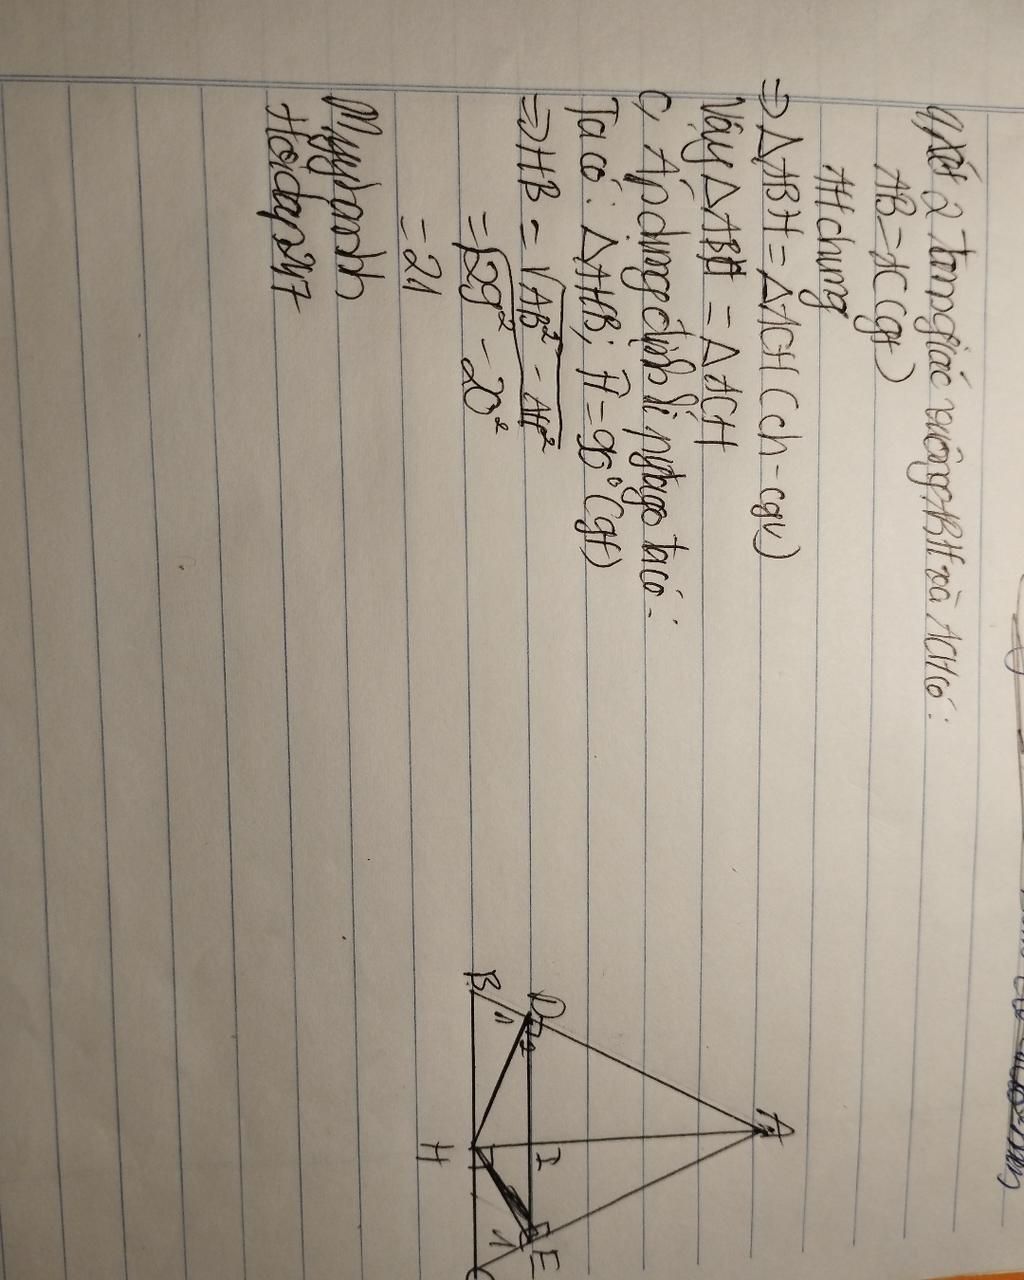 a, Xét 2 tam giác vuông ABH và ACH có:
AB = AC (gt)
AH chung
=> ΔABH = ΔACH (ch - cgv)
Vậy ΔABH = ΔACH
C, Áp dụng định lí pytago ta có:
Ta có: ΔAHB; Ĥ = 90° (gt)
=> HB = √AB² - AH²
= √29² - 20²
= 21
Myynanh
Hoidap247
A
D
I
E
B
H
C
1
1